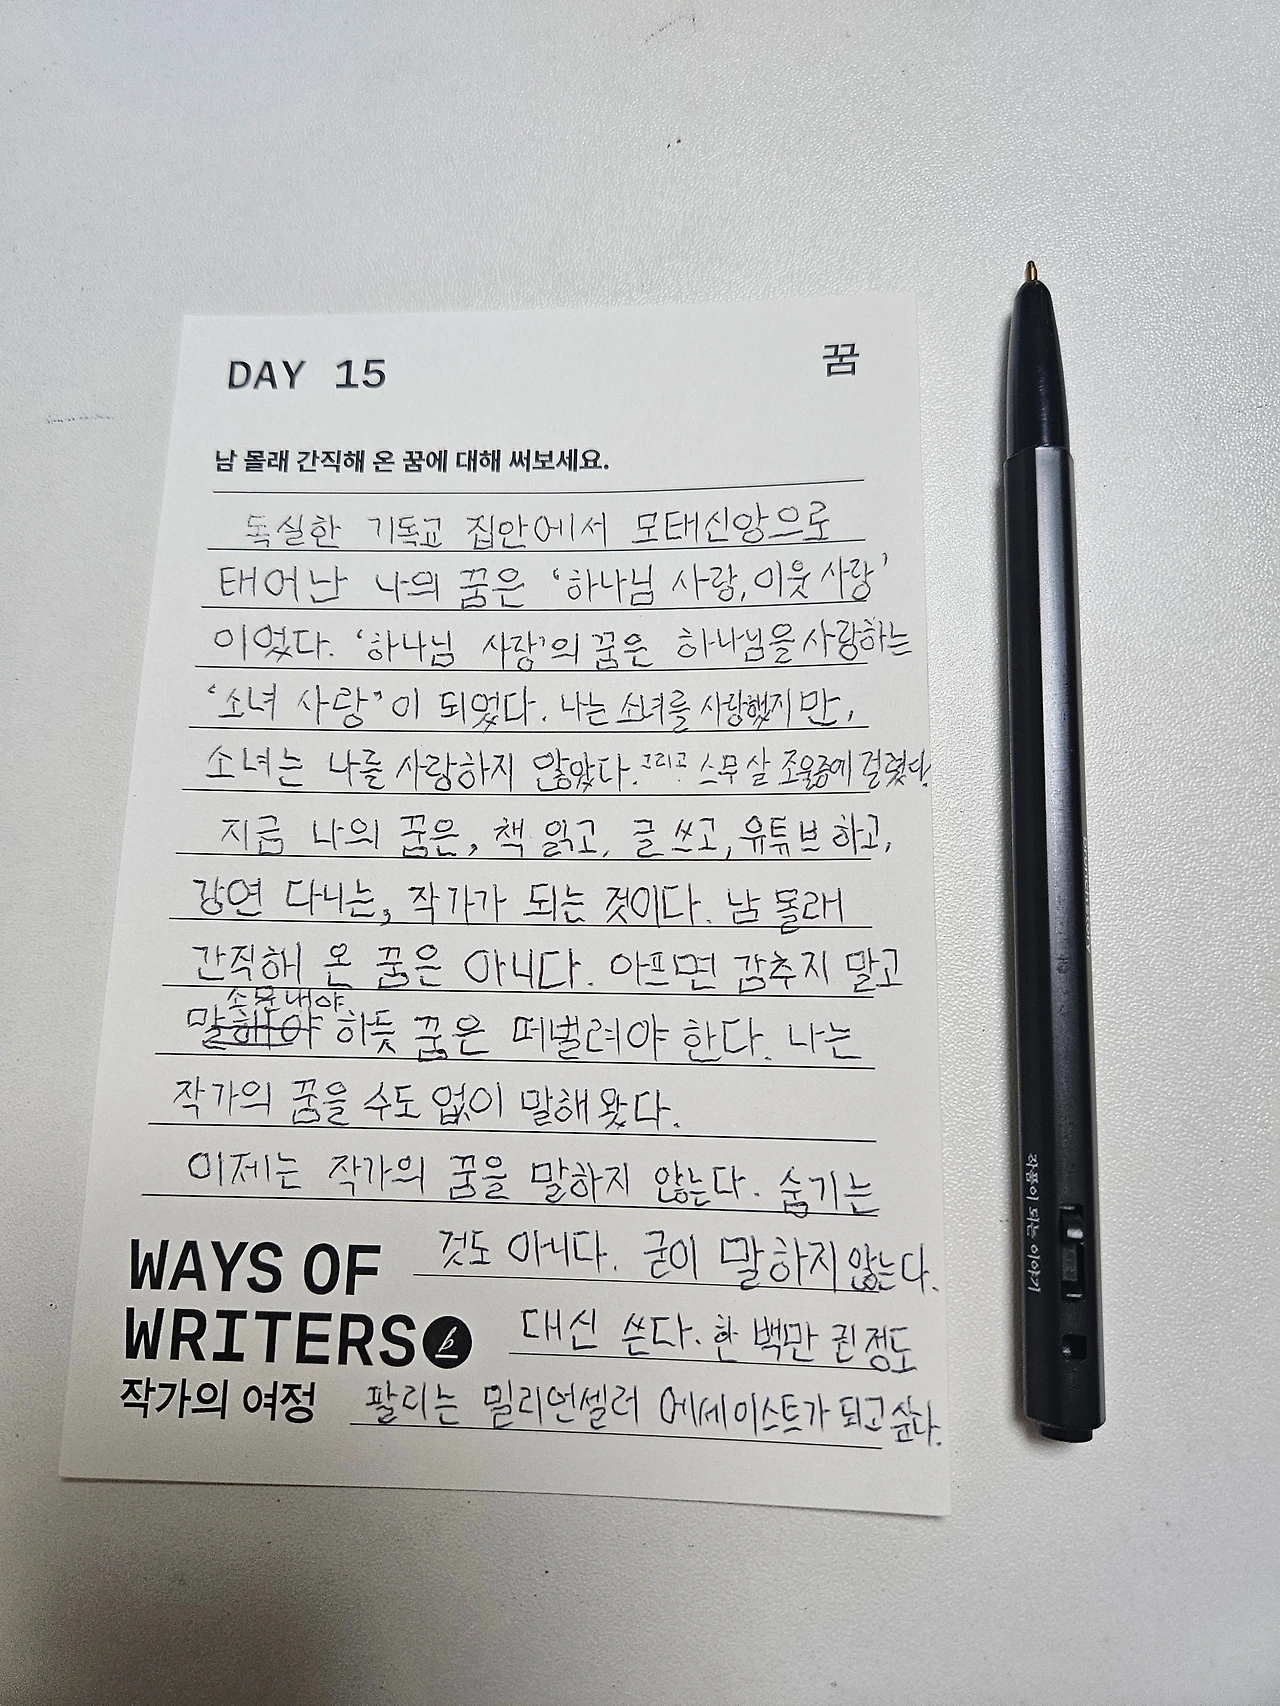 DAY 15
꿈
남 몰래 간직해 온 꿈에 대해 써보세요.
독실한 기독교 집안에서 모태신앙으로
태어난 나의 꿈은 '하나님 사랑, 이웃 사랑'
이었다. '하나님 사랑'의 꿈은 하나님을 사랑하는
'소녀 사랑'이 되었다. 나는 소녀를 사랑했지만,
소녀는 나를 사랑하지 않았다. 그리고 스무 살 조울증에 걸렸다.
지금 나의 꿈은, 책 읽고, 글 쓰고, 유튜브 하고,
강연 다니는, 작가가 되는 것이다. 남 몰래
간직해 온 꿈은 아니다. 아프면 감추지 말고
소문내야
말해두야 하듯 꿈은 떠벌려야 한다. 나는
작가의 꿈을 수도 없이 말해 왔다.
이제는 작가의 꿈을 말하지 않는다. 숨기는
것도 아니다. 굳이 말하지 않는다.
대신 쓴다. 한 백만 권 정도
팔리는 밀리언셀러 에세이스트가 되고 싶다.
WAYS OF
WRITERS b
작가의 여정
작품이 되는 이야기